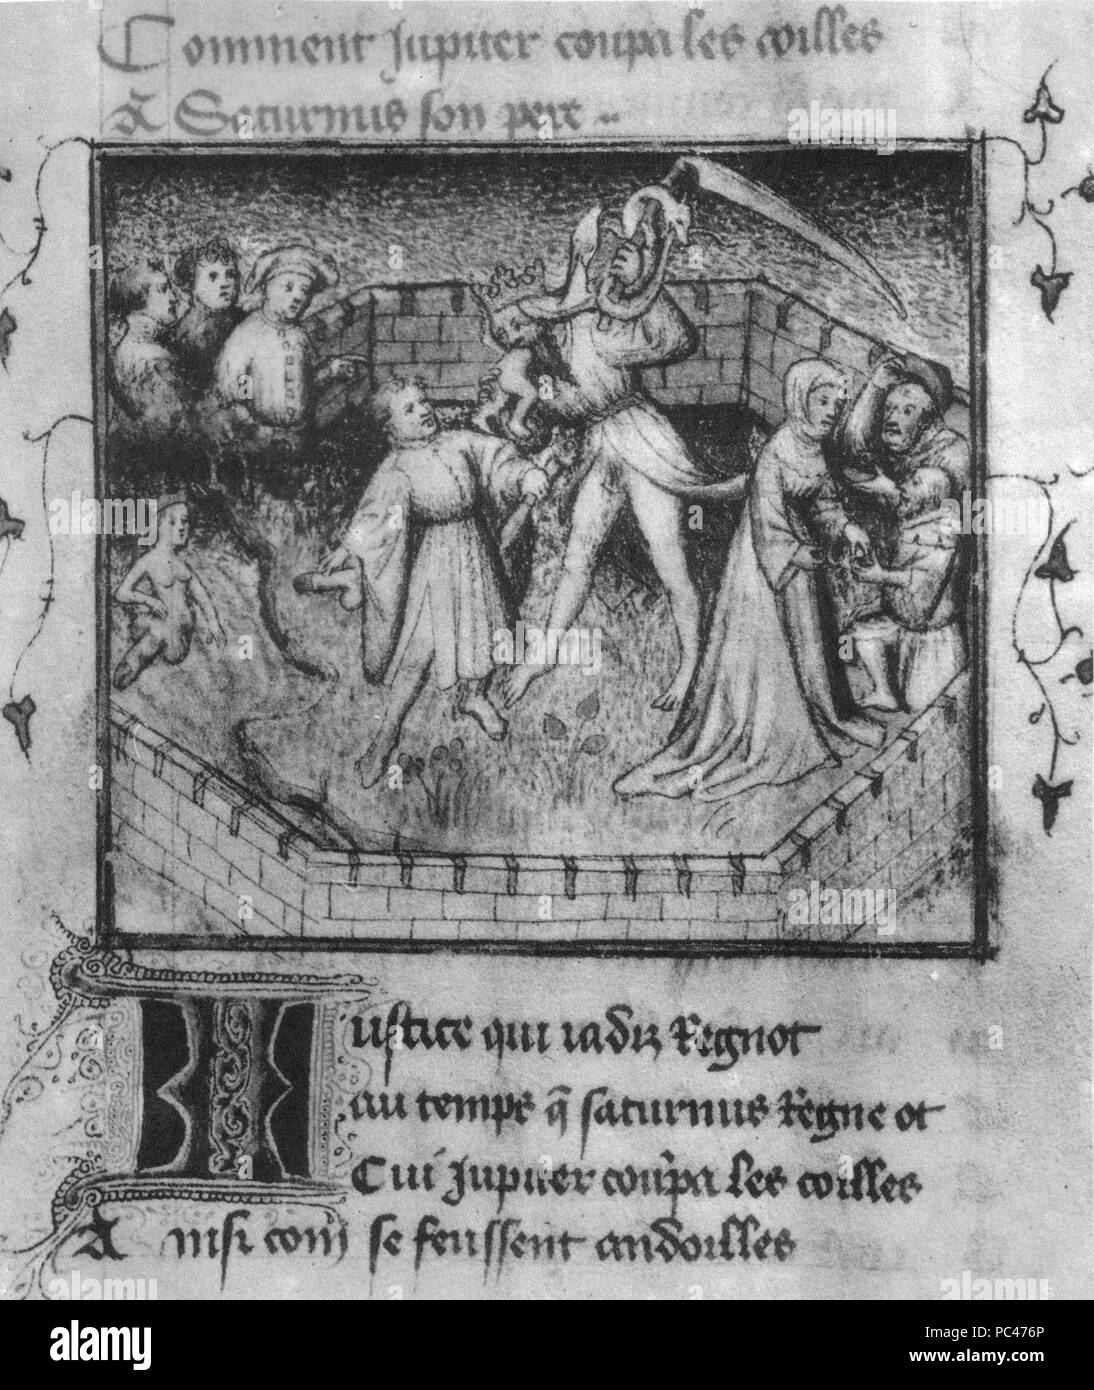 Comment Jupiter coupa les coilles
A Saturnus son pere
Iustice qui iadiz Regnot
au temps q̃ saturnus Regne ot
Cui Jupiter coupa les coilles
Ainsi com se feussent andoilles
alamy
Image ID: PC476P
www.alamy.com